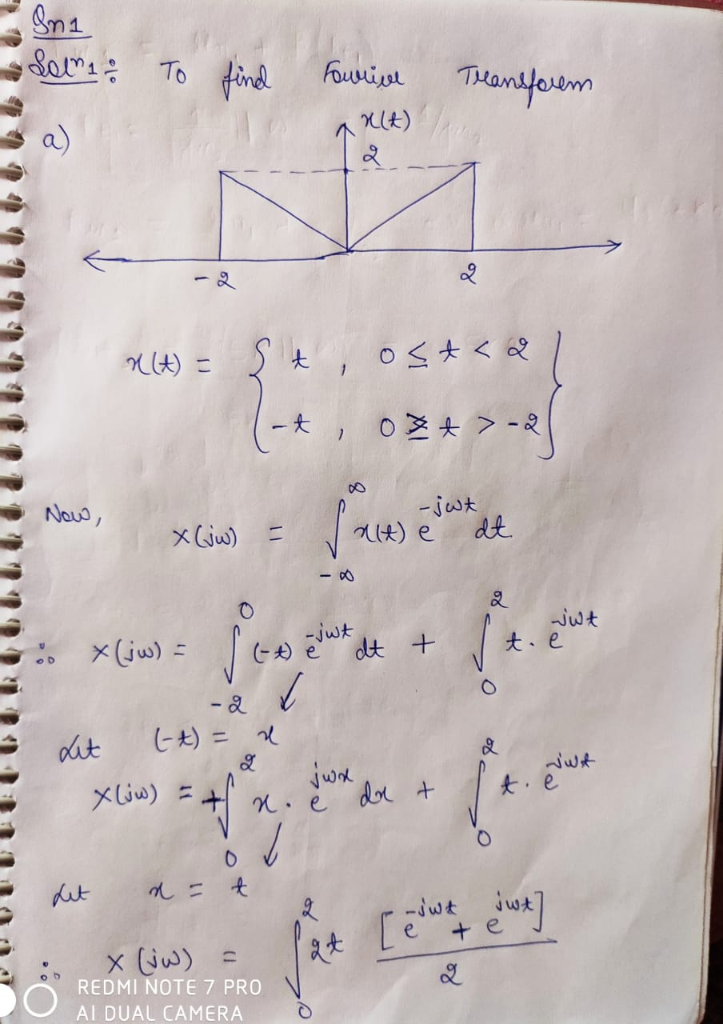 Qn 1
Solⁿ 1 ÷ To find Fourier Transform
a)
x(t)
2
-2 2
x(t) = { t , 0 ≤ t < 2
-t , 0 ≥ t > -2 }
Now, X(jω) = ∫_{-∞}^{∞} x(t) e^{-jωt} dt
∴ X(jω) = ∫_{-2}^{0} (-t) e^{-jωt} dt + ∫_{0}^{2} t. e^{-jωt}
Let (-t) = x
X(jω) = +∫_{0}^{2} x. e^{jωx} dx + ∫_{0}^{2} t. e^{-jωt}
Let x = t
∴ X(jω) = ∫_{0}^{2} 2t [e^{-jωt} + e^{jωt}] / 2
REDMI NOTE 7 PRO
AI DUAL CAMERA